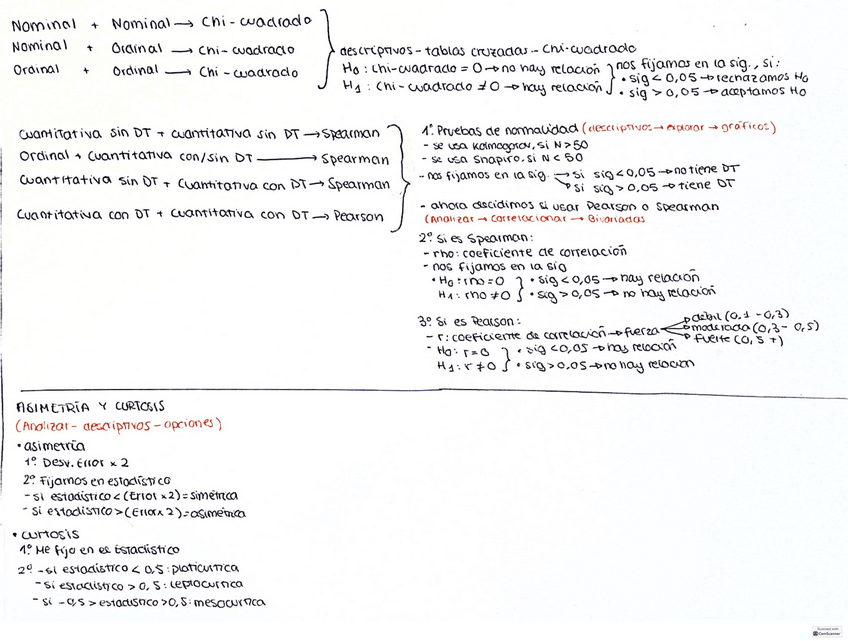 Nominal + Nominal → Chi-cuadrado
Nominal + Ordinal → Chi-cuadrado
Ordinal + Ordinal → Chi-cuadrado
descriptivos - tablas cruzadas - Chi-cuadrado
H0: Chi-cuadrado = 0 → no hay relación
H1: Chi-cuadrado ≠ 0 → hay relación
nos fijamos en la sig., si:
• sig < 0,05 → rechazamos H0
• sig > 0,05 → aceptamos H0
Cuantitativa sin DT + cuantitativa sin DT → Spearman
Ordinal + Cuantitativa con/sin DT → Spearman
Cuantitativa sin DT + Cuantitativa con DT → Spearman
Cuantitativa con DT + Cuantitativa con DT → Pearson
1º. Pruebas de normalidad (descriptivos → explorar → gráficos)
- se usa Kolmogorov, si N > 50
- se usa Shapiro, si N < 50
- nos fijamos en la sig. → si sig < 0,05 → no tiene DT
→ si sig > 0,05 → tiene DT
- ahora decidimos si usar Pearson o Spearman
(Analizar → correlacionar → Bivariadas
2º. Si es Spearman:
- rho: coeficiente de correlación
- nos fijamos en la sig
• H0: rho = 0
H1: rho ≠ 0
• sig < 0,05 → hay relación
• sig > 0,05 → no hay relación
3º. Si es Pearson:
- r: coeficiente de correlación → fuerza
debil (0,1 - 0,3)
moderada (0,3 - 0,5)
fuerte (0,5 +)
- H0: r = 0
H1: r ≠ 0
• sig < 0,05 → hay relación
• sig > 0,05 → no hay relación
ASIMETRÍA Y CURTOSIS
(Analizar - descriptivos - opciones)
• asimetría
1º. Desv. Error x 2
2º. Fijamos en estadístico
- si estadístico < (Error x 2) = simétrica
- si estadístico > (Error x 2) = asimétrica
• curtosis
1º. Me fijo en el Estadístico
2º - si estadístico < 0,5: platicúrtica
- si estadístico > 0,5: leptocúrtica
- si -0,5 > estadístico > 0,5: mesocúrtica
Scanned with
CamScanner